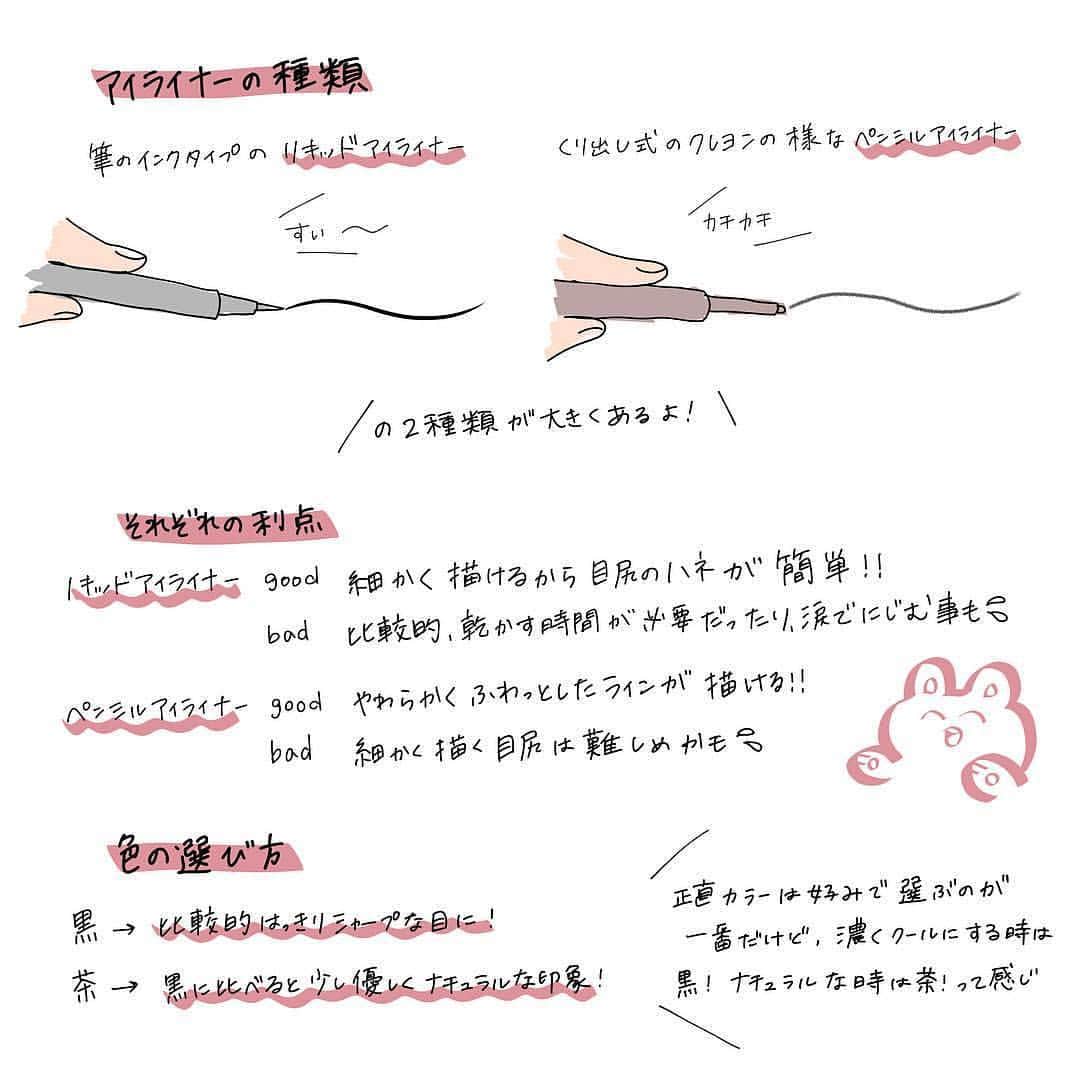 アイライナーの種類
筆のインクタイプの リキッドアイライナー
くり出し式のクレヨンの様な ペンシルアイライナー
すぃ〜
カチカチ
の2種類が大きくあるよ!
それぞれの利点
リキッドアイライナー good 細かく描けるから目尻のハネが簡単!!
bad 比較的、乾かす時間が必要だったり、涙でにじむ事も
ペンシルアイライナー good やわらかくふわっとしたラインが描ける!!
bad 細かく描く目尻は難しめかも
色の選び方
黒 → 比較的はっきりシャープな目に!
茶 → 黒に比べると少し優しくナチュラルな印象!
正直カラーは好みで選ぶのが
一番だけど、濃くクールにする時は
黒! ナチュラルな時は茶!って感じ